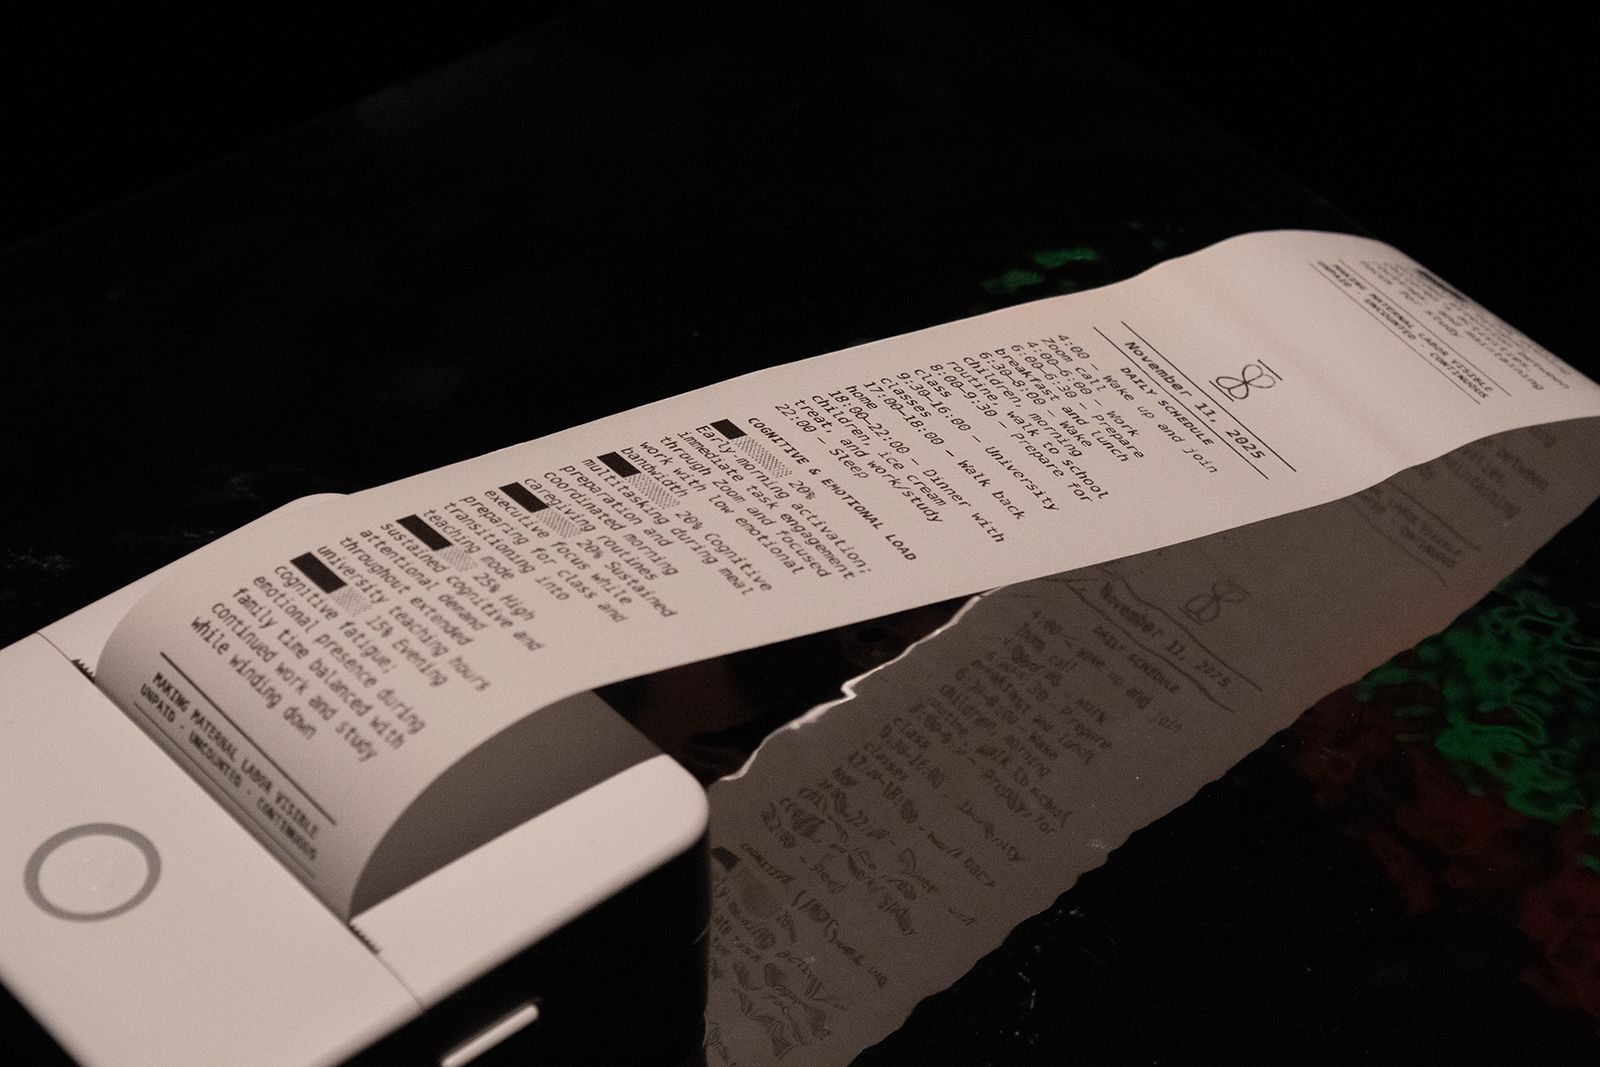 MAKING MATERNAL LABOR VISIBLE
UNPAID · UNCOUNTED · CONTINUOUS
November 11, 2025
DAILY SCHEDULE
4:00 — Wake up and join
Zoom call
4:00–6:00 — Work
6:00–6:30 — Prepare
breakfast and lunch
6:30–8:00 — Wake
children, morning
routine, walk to school
8:00–9:30 — Prepare for
class
9:30–16:00 — University
classes
17:00–18:00 — Walk back
home
18:00–22:00 — Dinner with
children, ice cream
treat, and work/study
22:00 — Sleep
COGNITIVE & EMOTIONAL LOAD
20%
Early-morning activation;
immediate task engagement
through Zoom and focused
work with low emotional
bandwidth
20% Cognitive
multitasking during meal
preparation and
coordinated morning
caregiving routines
20% Sustained
executive focus while
preparing for class and
transitioning into
teaching mode
25% High
sustained cognitive and
attentional demand
throughout extended
university teaching hours
15% Evening
cognitive fatigue;
emotional presence during
family time balanced with
continued work and study
while winding down
MAKING MATERNAL LABOR VISIBLE
UNPAID · UNCOUNTED · CONTINUOUS